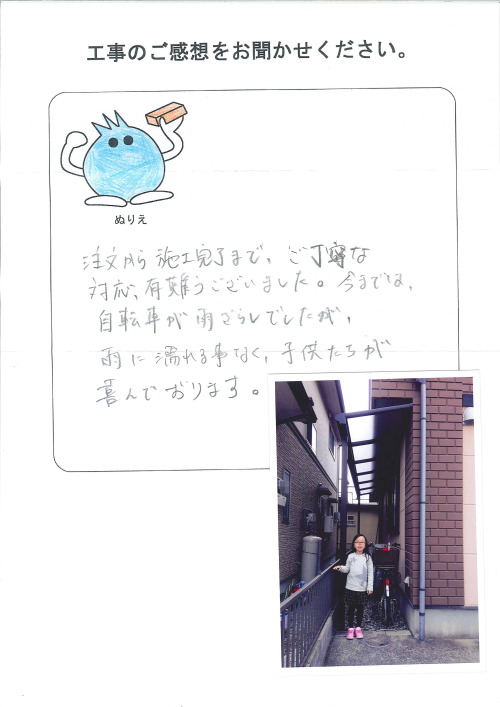 工事のご感想をお聞かせください。
ぬりえ
注文から施工完了まで、ご丁寧な
対応、有難うございました。今までは、
自転車が雨ざらしでしたが、
雨に濡れる事なく、子供たちが
喜んでおります。